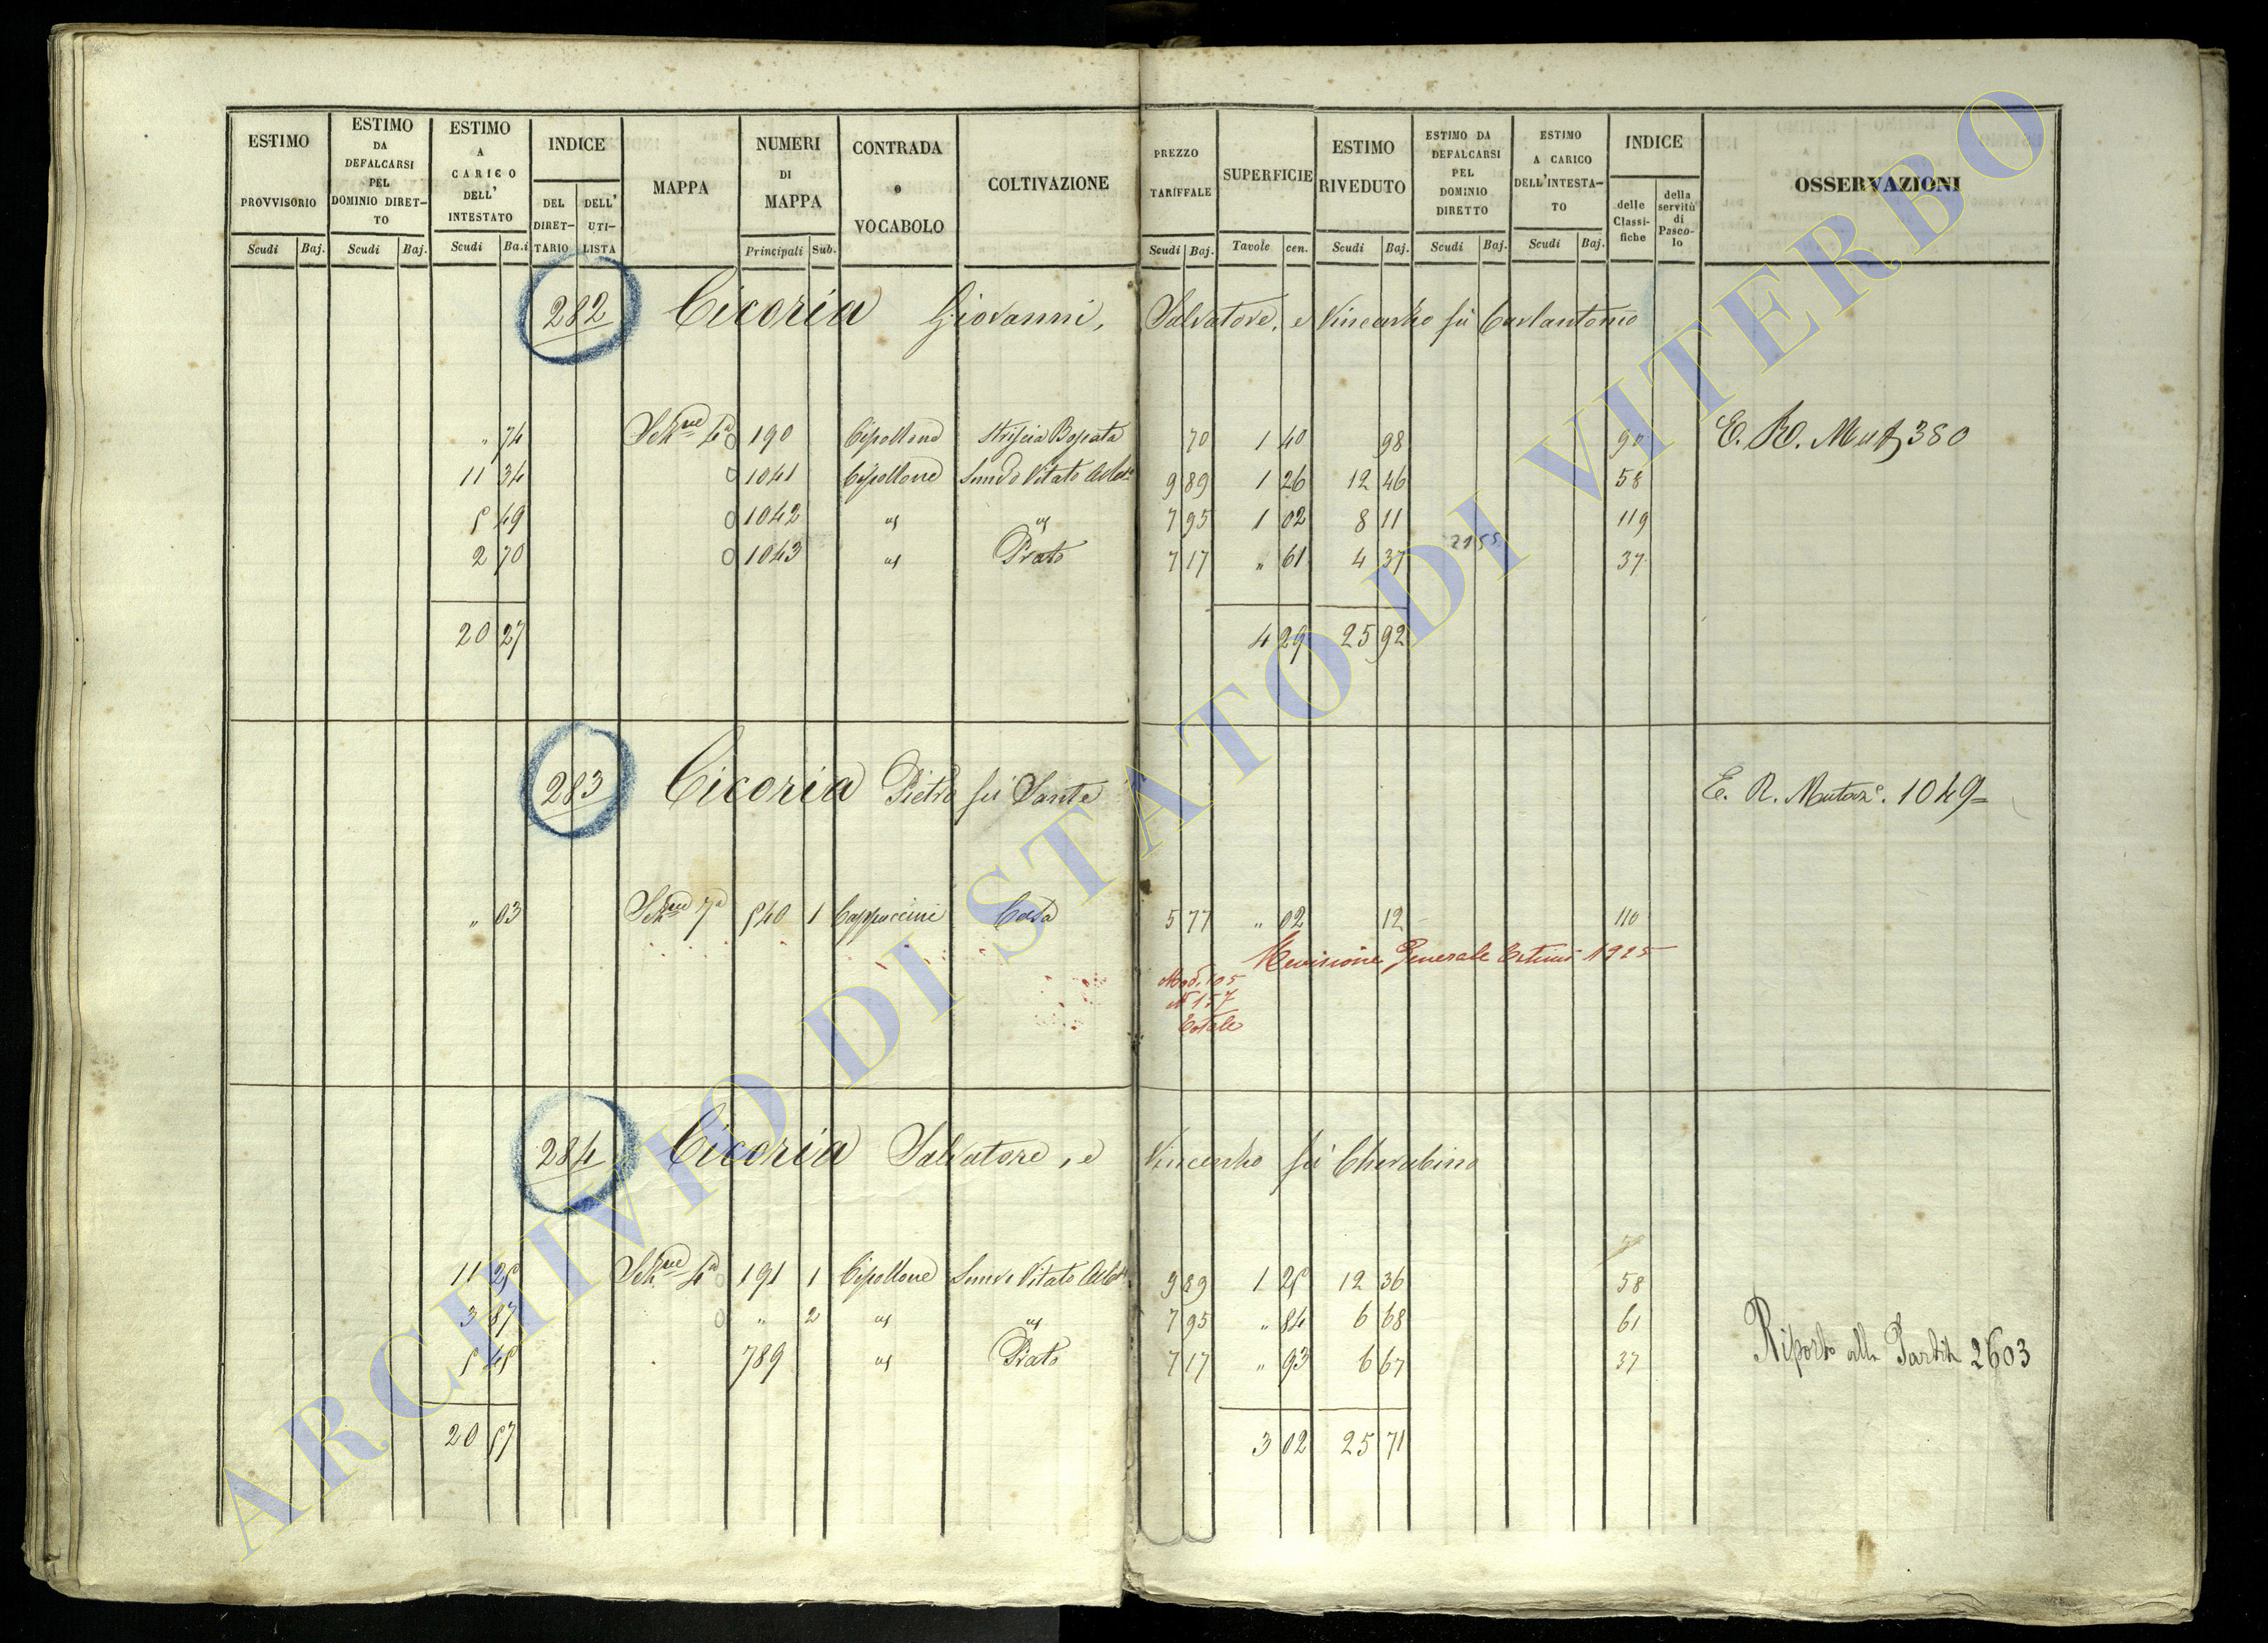 ESTIMO PROVVISORIO Scudi Baj.
ESTIMO DA DEFALCARSI PEL DOMINIO DIRETTO Scudi Baj.
ESTIMO A CARICO DELL' INTESTATO Scudi Ba.i
INDICE DEL DIRETTARIO DELL' UTILISTA
MAPPA
NUMERI DI MAPPA Principali Sub.
CONTRADA o VOCABOLO
COLTIVAZIONE
PREZZO TARIFFALE Scudi Baj.
SUPERFICIE Tavole cen.
ESTIMO RIVEDUTO Scudi Baj.
ESTIMO DA DEFALCARSI PEL DOMINIO DIRETTO Scudi Baj.
ESTIMO A CARICO DELL'INTESTATO Scudi Baj.
INDICE delle Classifiche della servitù di Pascolo
OSSERVAZIONI
282 Cicoria Giovanni, Salvatore, e Vincenzo fù Carlantonio
" 74 Sez.ne 4a 190 Cipollone 70 1 40 98 90 E. R. Mut 380
11 34 1041 Cipollone 9 89 1 26 12 46 58
5 49 1042 " " 7 95 1 02 8 11 119
2 70 1043 " Prato 7 17 " 61 4 37 2155 37
20 27 4 29 25 92
283 Cicoria Pietro fù Sante E. R. Mutaz.e 1049
" 03 Sez.ne 7a 540 1 Cappuccini Casa 5 77 " 02 12 110
Revisione Generale Estimi 1925
Mod. 105
N 157
Totale
284 Cicoria Salvatore, e Vincenzo fù Cherubino
11 25 Sez.ne 4a 191 1 Cipollone 9 89 1 25 12 36 58
3 87 " 2 " " 7 95 " 84 6 68 61
5 45 789 " Prato 7 17 " 93 6 67 37 Riporto alla Partita 2603
20 57 3 02 25 71
ARCHIVIO DI STATO DI VITERBO